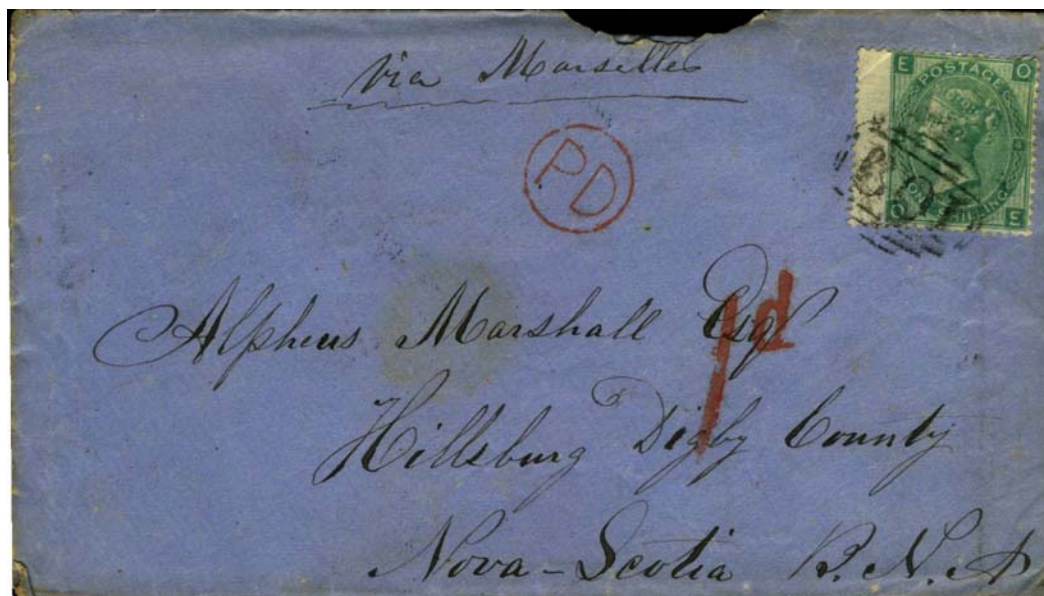 via Marseilles
PD
E POSTAGE O
O ONE SHILLING E
1d
Alpheus Marshall Esqr
Hillsburg Digby County
Nova-Scotia B.N.A